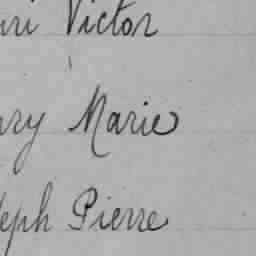 uri Victor
ury Marie
seph Pierre